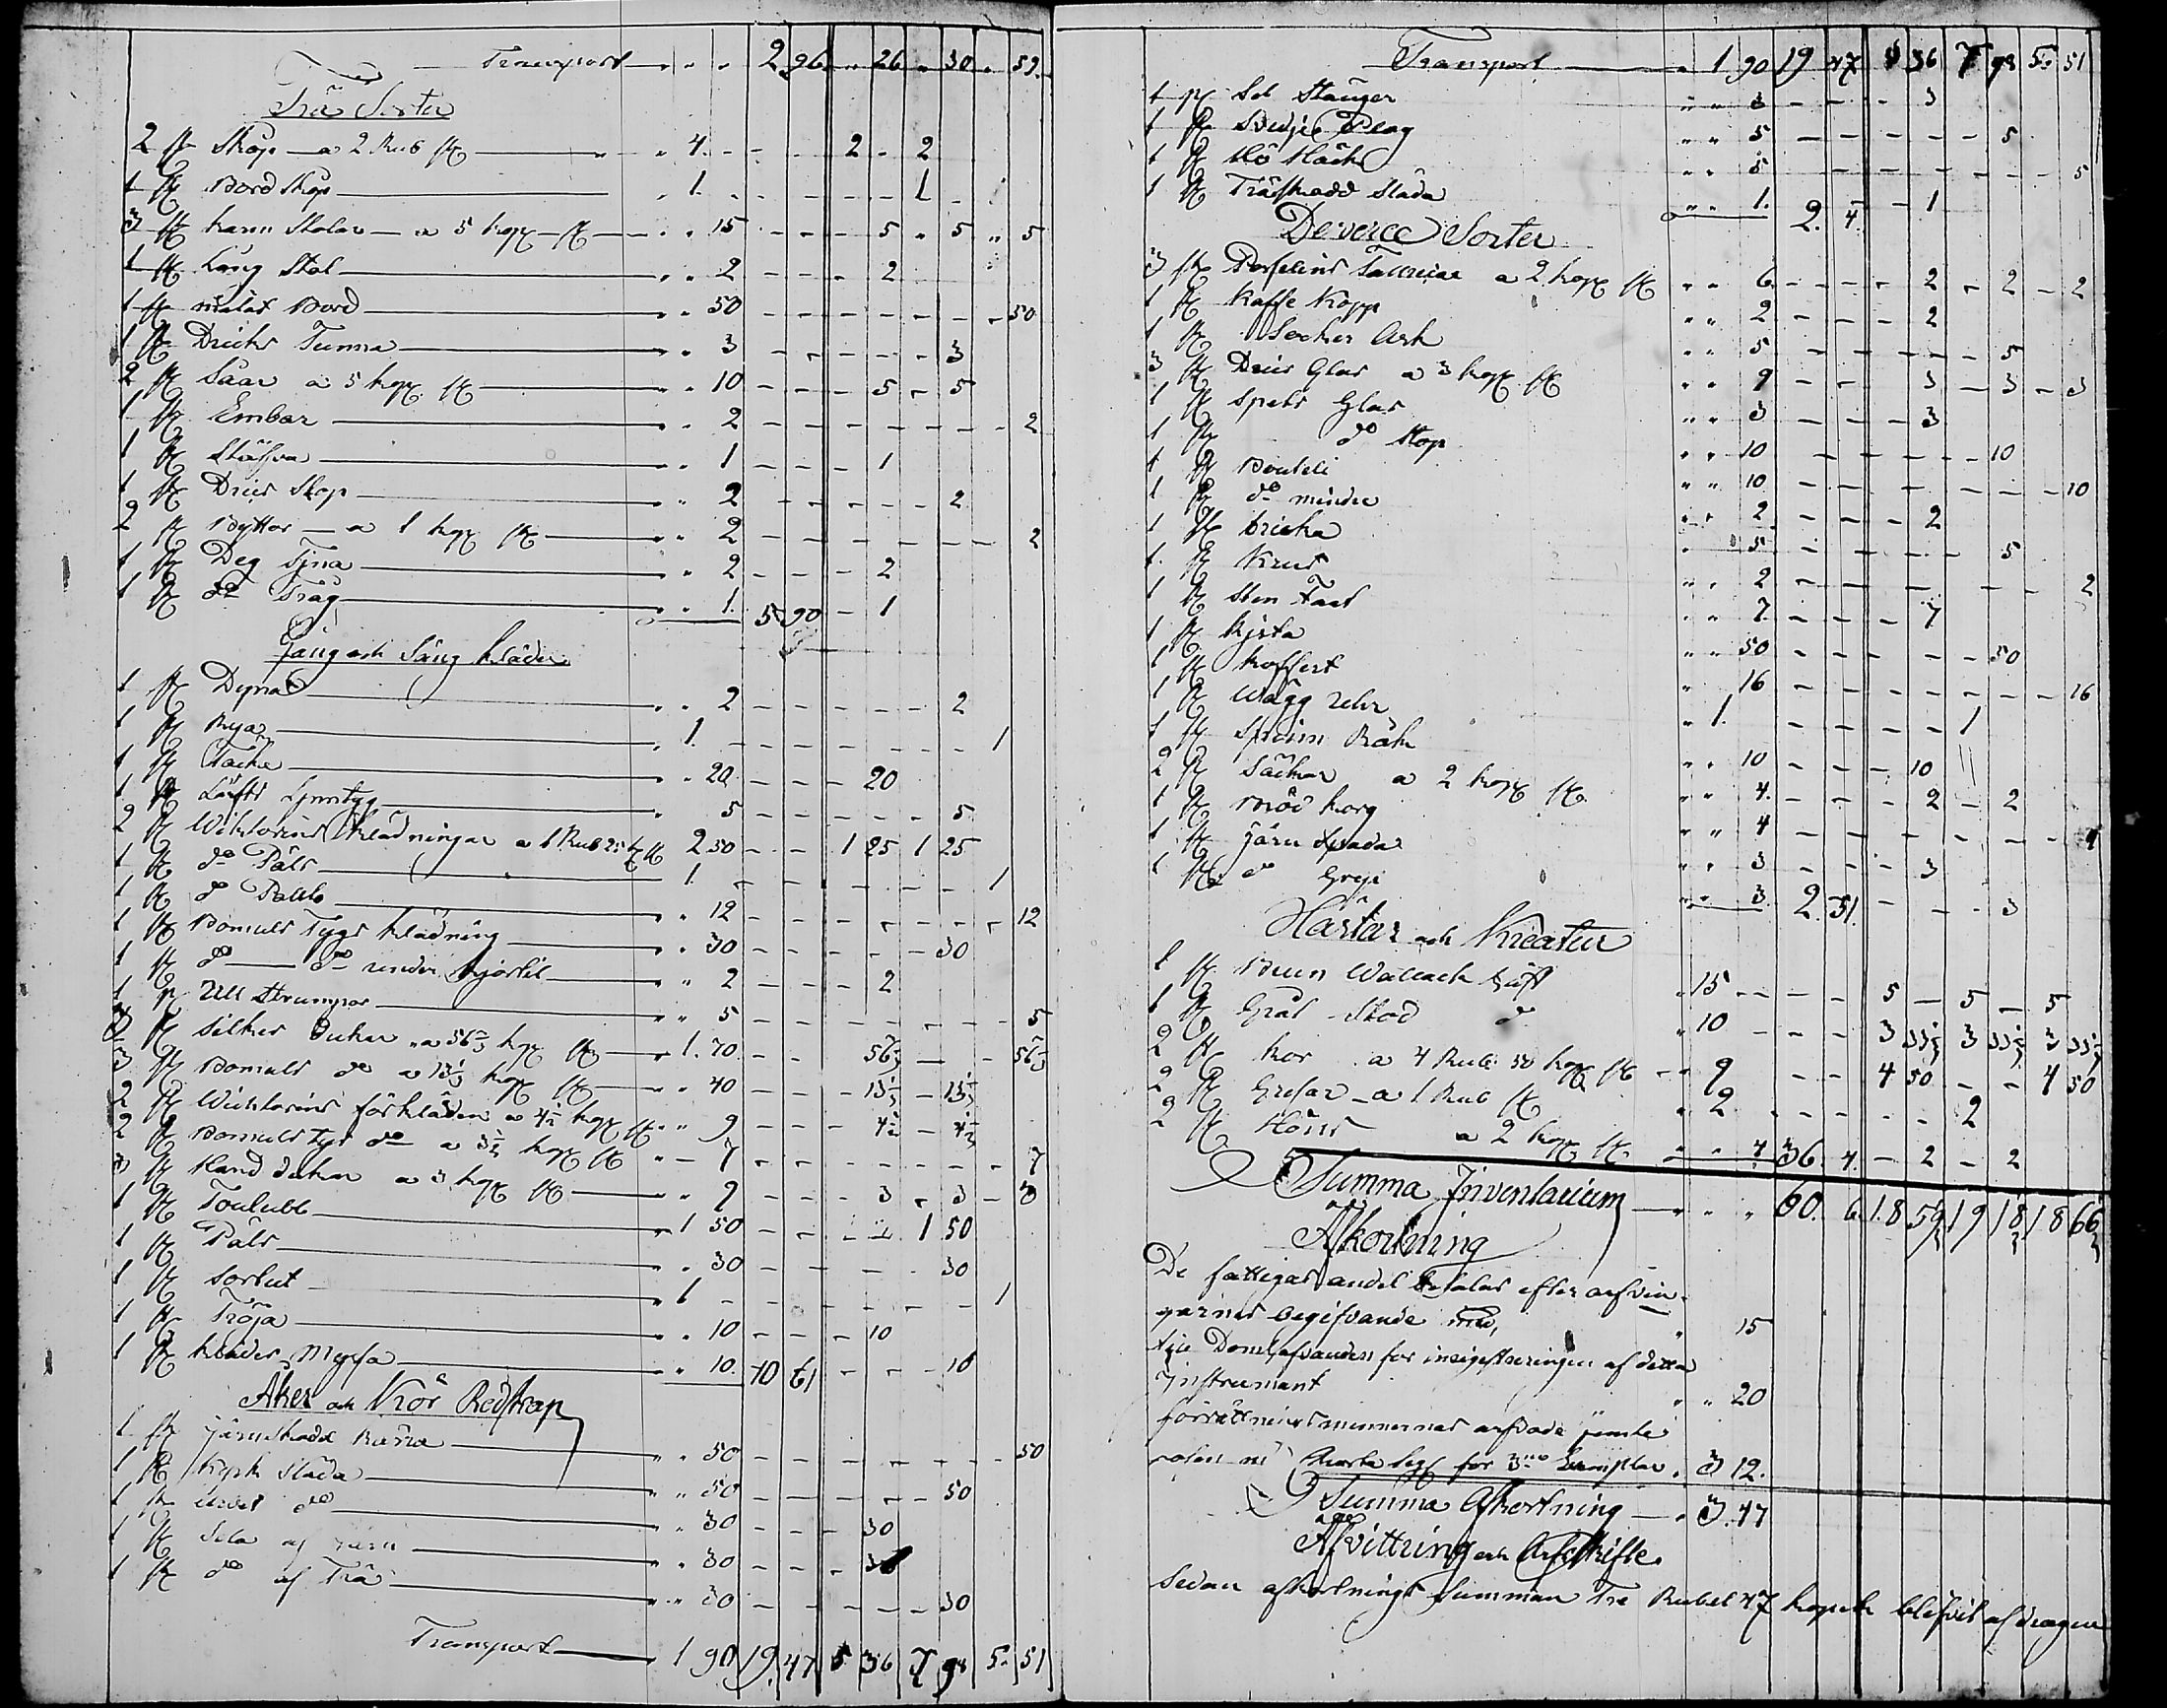 Transport " " " 2 96 " 26 " 30 " 59
Trä Sorter
2 st Skåp a 2 Rub st " 4 - - 2 - 2
1 st Bord Skåp " 1 - - - - 1
3 st karm Stolar a 5 kop st " " 15 - - - 5 " 5 " 5
1 st Lång Stol " " 2 - - - 2
1 st målat Bord " " 50 - - - - - - - 50
1 st Dricks Tunna " " 3 - - - - - 3
2 st Såar a 5 kop st " " 10 - - - 5 - 5
1 st Embar " " 2 - - - - - - - 2
1 st Stäfva " " 1 - - - 1
1 st Drick Stop " " 2 - - - - - 2
2 st Byttor a 1 kop st " " 2 - - - - - - - 2
1 st Deg Tjna " " 2 - - - 2
1 st do Tråg " " 1 5 90 - 1
Gång och Säng kläder
1 st Dyna " " 2 - - - - - 2
1 st Rya " 1 - - - - - - 1
1 st Täcke " " 20 - - - 20
1 st Lärfts " 5 - - - - - 5
2 st klädningar a 1 Rub 25 k st 2 50 - - 1 25 1 25
1 st do Päls 1 - - - - - - 1
1 st do " " 12 - - - - - - - 12
1 st Bomuls Tygs klädning " " 30 - - - - - 30
1 st do do under kjortel " " 2 - - - 2
1 p Ull Strumpor " " 5 - - - - - - - 5
st Silkes dukar a 56 2/3 kop st " 1 70 - - 56 2/3 - - 56 2/3
3 st Bomuls do a 13 1/3 kop st " " 40 - - - 13 1/3 - 13 1/3
2 st förkläden a 4 1/2 kop st " " 9 - - - 4 1/2 - 4 1/2
2 st Bomuls tygs do a 3 1/2 kop st " - 7 - - - - - - - 7
3 st Hand dukar a 3 kop st " " 9 - - - 3 - 3 - 3
1 st Toulubb " 1 50 - - - - 1 50
1 st Päls " " 30 - - - - - 30
1 st Sortut " 1 - - - - - - 1
1 st Tröja " " 10 - - - 10
1 st kläder Myssa " " 10 10 61 - - - 10
Åker och Kör Redskap
1 st järnskodd kärra " " 50 - - - - - - - 50
1 st Kyrk släda " " 50 - - - - - 50
1 st do " " 30 - - - 30
1 st Sela af järn " " 30 - - - 30
1 st do af Trä " " 30 - - - - - 30
Transport 1 90 19 47 5 36 7 98 5 51
Transport " 1 90 19 47 5 36 7 98 5 51
1 p Stänger " " 3 - - - 3
1 st Plog " " 5 - - - - - 5
1 st Hö Häck " " 5 - - - - - - - 5
1 st Träskodd Släda " " 1 2 4 - 1
Deverce Sorter
3 st Porselins Talrikar a 2 kop st " " 6 - - - 2 - 2 - 2
1 st kaffe kopp " " 2 - - - 2
1 st Socker Ask " " 5 - - - - - 5
3 st Glas a 3 kop st " " 9 - - - 3 - 3 - 3
1 st Spets Glas " " 3 - - - 3
1 st do Stop " " 10 - - - - - 10
1 st Bouteli " " 10 - - - - - - - 10
1 st do mindre " " 2 - - - 2
1 st bricka " 5 - - - - - 5
1 st Krus " " 2 - - - - - - - 2
1 st Sten Faat " " 7 - - - 7
1 st kjsta " " 50 - - - - - 50
1 st koffert " 16 - - - - - - - 16
1 st Wägg " 1 - - - - 1
1 st Spinn Råck " " 10 - - - 10
2 st Säckar a 2 kop st " " 4 - - - 2 - 2
1 st korg " " 4 - - - - - - - 4
1 st järn Spada " " 3 - - - 3
1 st do Grepe " " 3 2 51 - - - 3
Hästar och Kreatur
1 st Brun Wallack häst " 15 - - - 5 - 5 - 5
1 st Gråt Stod do " 10 - - - 3 33 1/3 3 33 1/3 3 33 1/3
2 st kor a 4 Rub 50 kop st - - 9 - - 4 50 - - 4 50
2 st a 1 Rub st " 2 - - - - 2
2 st Höns a 2 kop st " " 4 36 4 - 2 - 2
Summa Inventarium " " " 60 6 18 59 19 18 18 66
Afkortning
De fattigas andel betalas efter arfvin-
garnes begifvande med, " 15
till Domhafvanden for inregistreringen af detta
Instrument " " 20
förrättnings männernas arfvode jemte
Charta for 3ne Exemplar " 3 12
Summa Afkortning " 3 47
Afvittring och Arfskifte
Sedan afkortnings Summan Tre Rubel 47 kopek blifvit afdragen